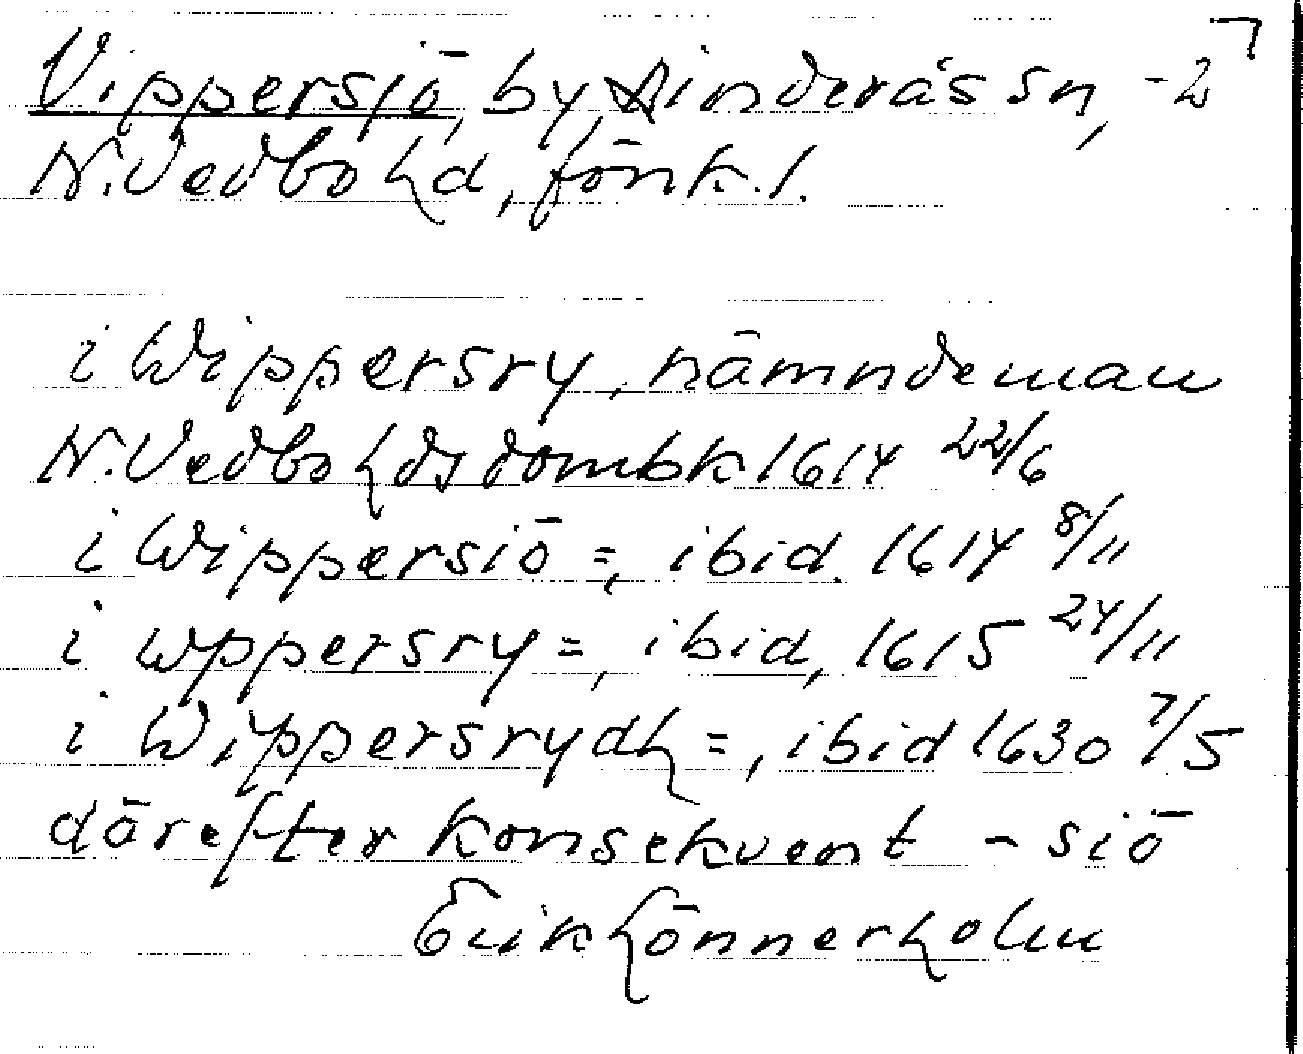 Vippersjö, by, Hinderås sn, -2
N. Vedbo hd, Jönk. l.
i Wippersry, nämndeman
N. Vedbo hds dombk 1614 22/6
i Wippersiö =, ibid. 1614 8/11
i wppersry =, ibid, 1615 24/11
i Wippersrydh =, ibid 1630 7/5
därefter konsekvent - siö
Erik Lönnerholm